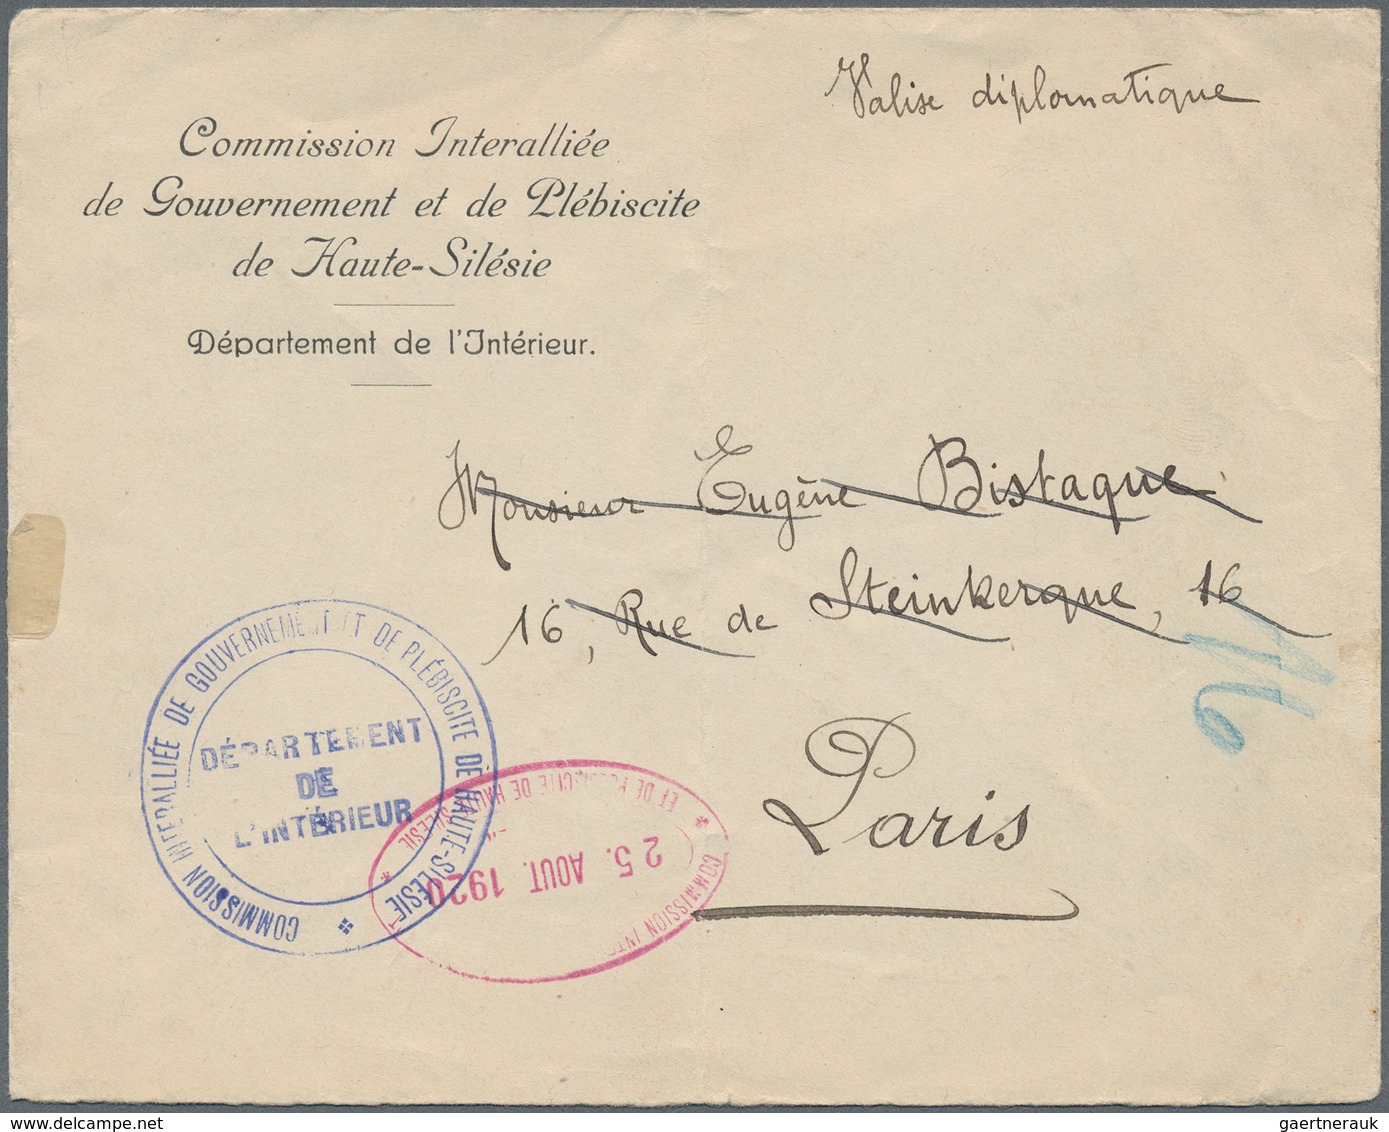 Valise diplomatique
Commission Interalliée
de Gouvernement et de Plébiscite
de Haute-Silésie
Département de l'Intérieur.
Monsieur Eugène Bistaque
16, Rue de Steinkerque, 16
Paris
COMMISSION INTERALLIÉE DE GOUVERNEMENT ET DE PLÉBISCITE DE HAUTE-SILÉSIE
DÉPARTEMENT
DE
L'INTÉRIEUR
COMMISSION INTE
25. AOUT. 1920
ET DE PLÉBISCITE DE HAUTE-SILÉSIE
gaertnerauk @ delcampe.net